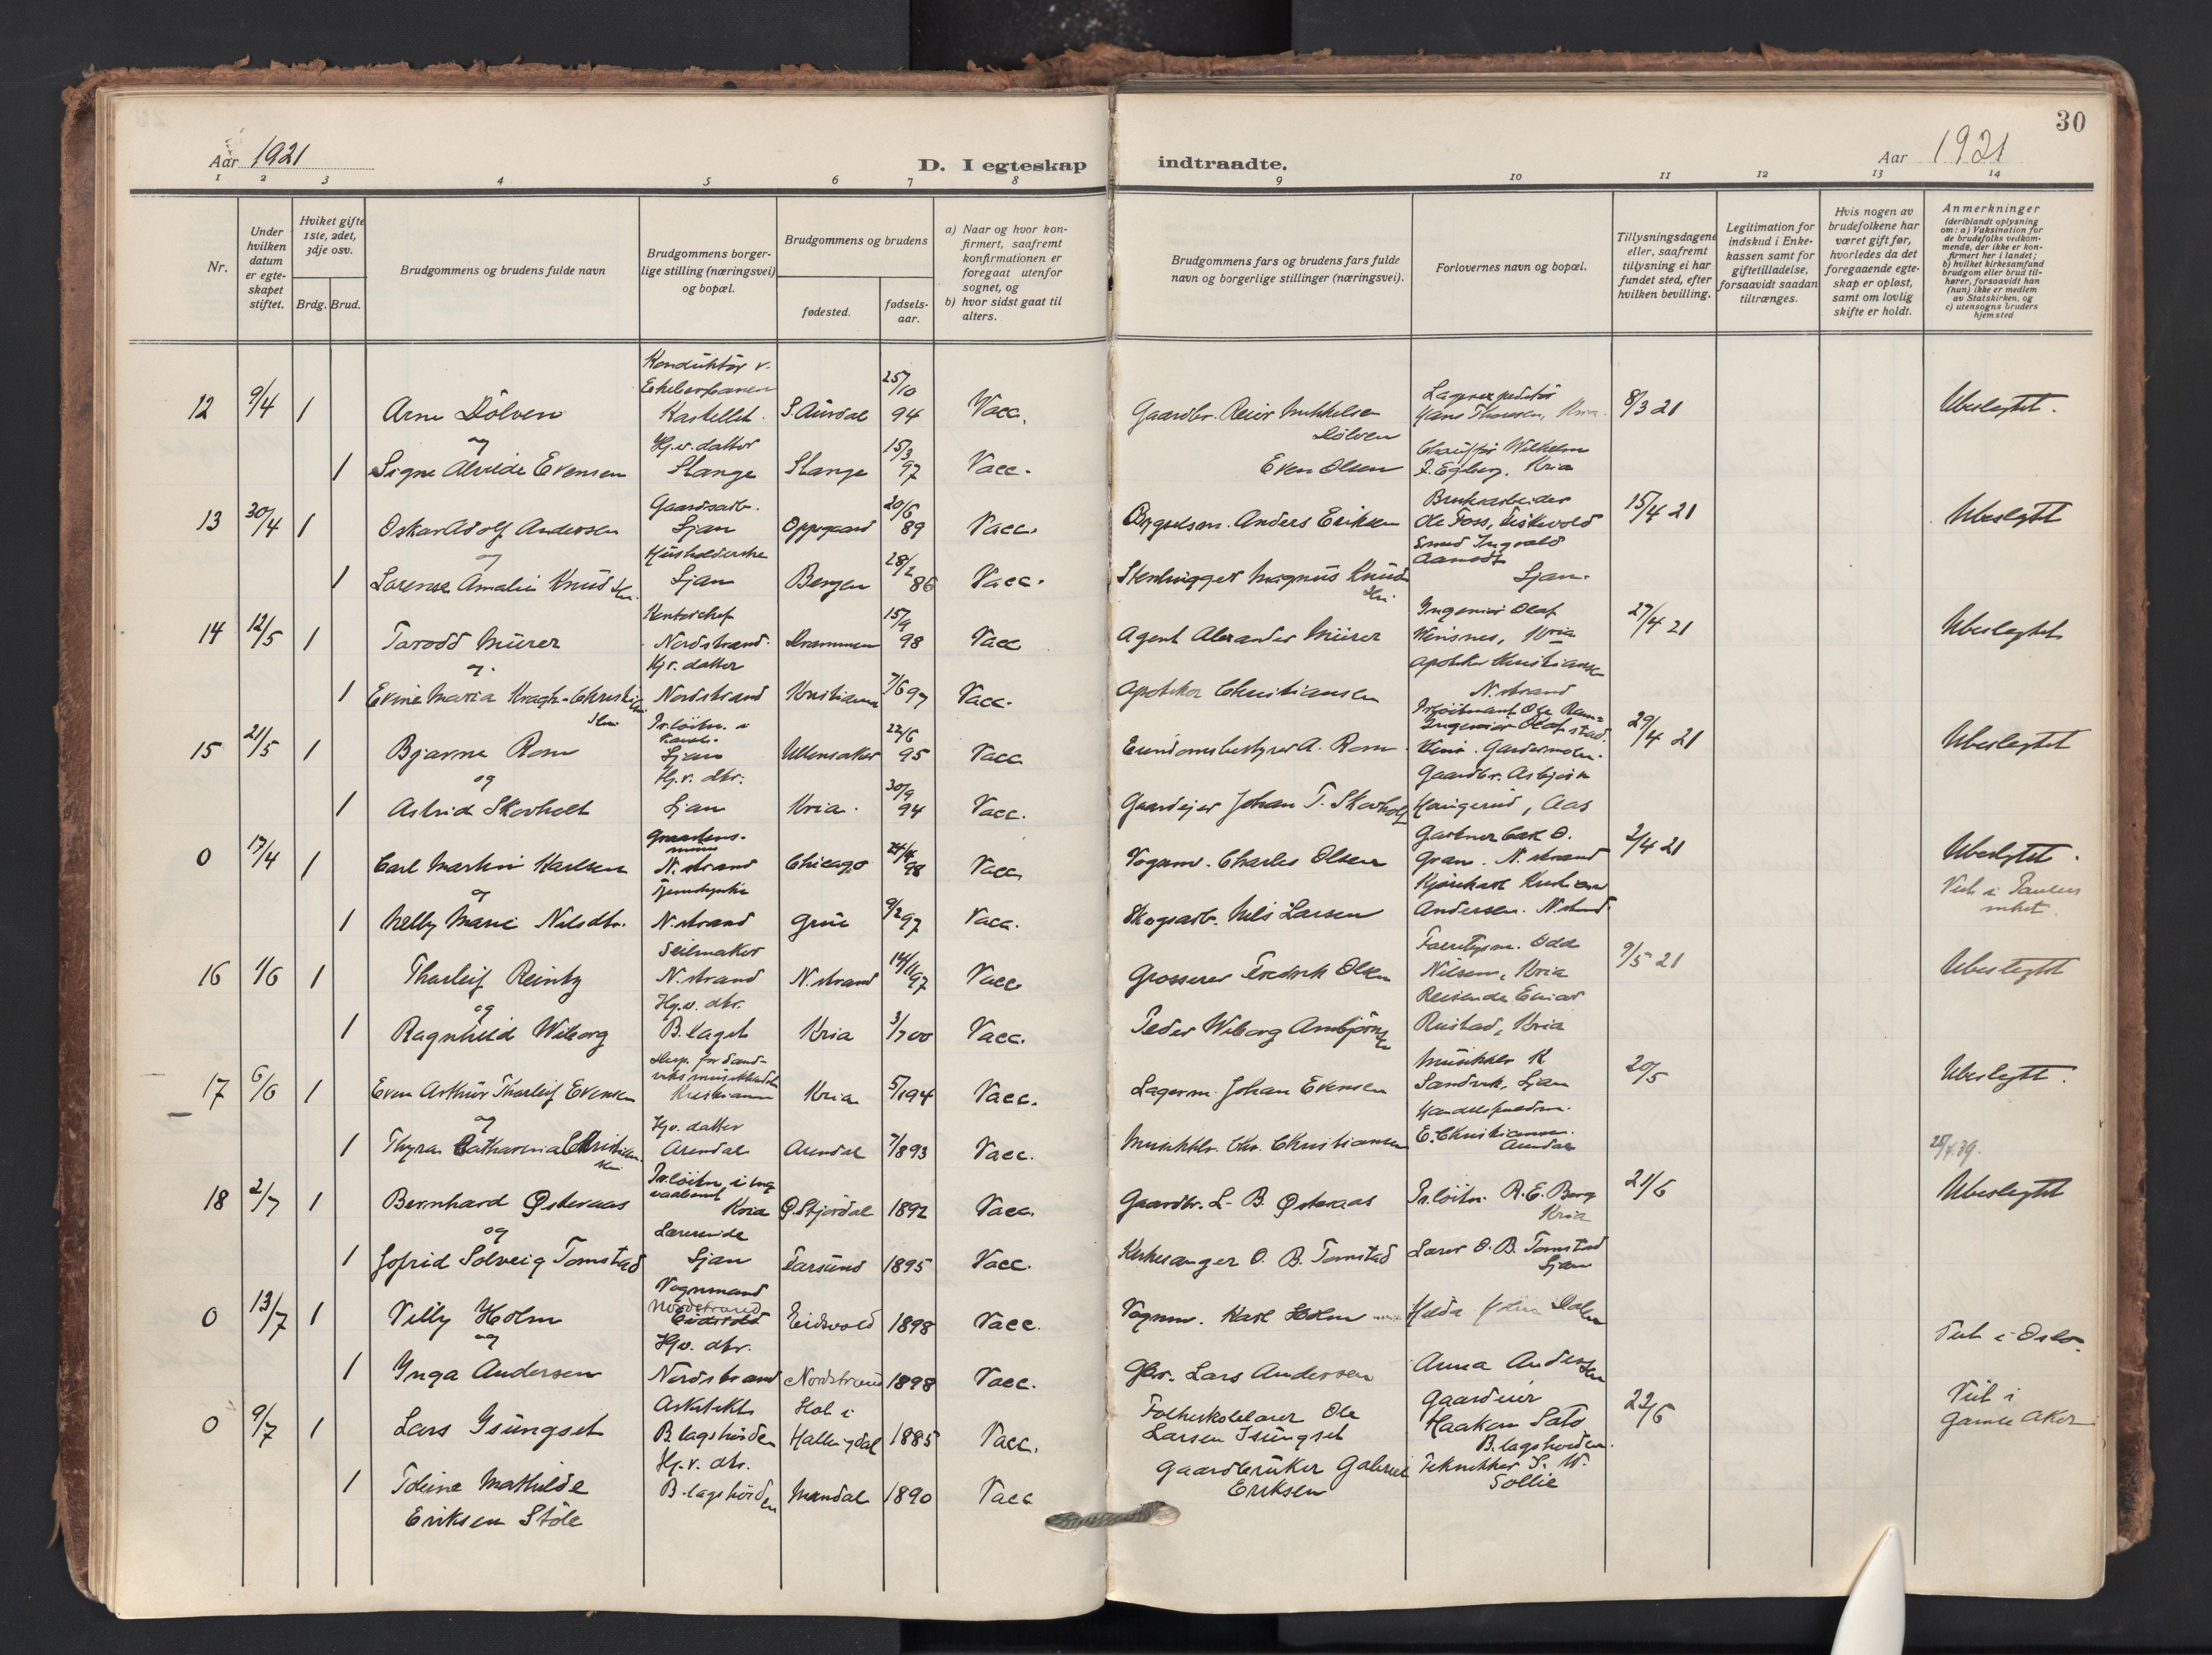 30
Aar 1921
D. I egteskap indtraadte.
Aar 1921
1 2 3 4 5 6 7 8 9 10 11 12 13 14
Nr.
Under hvilken datum er egteskapet stiftet.
Hviket gifte 1ste, 2det, 3dje osv.
Brdg. Brud.
Brudgommens og brudens fulde navn
Brudgommens borgerlige stilling (næringsvei) og bopæl.
Brudgommens og brudens
fødested.
fødselsaar.
a) Naar og hvor konfirmert, saafremt konfirmationen er foregaat utenfor sognet, og
b) hvor sidst gaat til alters.
Brudgommens fars og brudens fars fulde navn og borgerlige stillinger (næringsvei).
Forlovernes navn og bopæl.
Tillysningsdagene eller, saafremt tillysning ei har fundet sted, efter hvilken bevilling.
Legitimation for indskud i Enkekassen samt for giftetilladelse, forsaavidt saadan tiltrænges.
Hvis nogen av brudefolkene har været gift før, hvorledes da det foregaaende egteskap er opløst, samt om lovlig skifte er holdt.
Anmerkninger
(deriblandt oplysning om: a) Vaksination for de brudefolks vedkommende, der ikke er konfirmert her i landet; b) hvilket kirkesamfund brudgom eller brud tilhører, forsaavidt han (hun) ikke er medlem av Statskirken, og c) utensogns bruders hjemsted
12 9/4 1 Arne Dölven Konduktör v. Ekebergbanen Kastellet. S. Aurdal 25/10 94 Vacc. Gaardbr. Reier Mikkelsen Dölven Lagerexpeditör Hans Thoresen, Kria. 8/3 21 Ubeslegtet.
og
1 Signe Alvilde Evensen Hj.v. datter Stange Stange 15/3 97 Vacc. Even Olsen Chauffør Wilhelm Kria
13 30/4 1 Oskar Adolf Andersen Gaardsarb. Ljan Oppegaard 20/6 89 Vacc. Bygselm. Anders Eriksen Bruksarbeider Ole Foss, 15/4 21 Ubeslegtet
og
1 Lorense Amalie Knudsen Husholderske Ljan Bergen 28/2 86 Vacc. Stenhugger Magnus Knudsen Smed Ingvald Aamodt Ljan.
14 12/5 1 Tarodd Mürer Kontorchef Nordstrand. Drammen 15/9 98 Vacc Agent Alexander Mürer Ingeniør Olaf Kria 27/4 21 Ubeslegtet
og
1 Evine Maria Kragh-Christiansen Hj v. datter Nordstrand Kristiania 7/6 97 Vacc. Apotheker Christiansen Apotheker Kristiansen N.strand
15 21/5 1 Bjarne Rom Pr.löitn. i Ljan Ullensaker 22/6 95 Vacc Eiendomsbestyrer A. Rom Pr.löitnant Ole Ramstad Gardermoen. 29/4 21 Ubeslegtet
og
1 Astrid Skovholt Hj.v. dtr. Ljan Kria. 30/9 94 Vacc. Gaardejer Johan T. Skovholt Gaardbr. Asbjørn Haugerud, Aas
0 17/4 1 Carl Martin Karlsen N.strand Chicago 98 Vacc. Vognm. Charles Olsen Gartner Carl O. Gran. N.strand 2/4 21 Ubeslegtet.
og
1 Nelly Marie Nilsdtr. N.strand Grue 9/2 97 Vacc. Skogsarb. Nils Larsen Andersen. N.strand. Viet i Paulus
16 1/6 1 Tharleif Reintz Seilmaker N.strand N.strand 14/11 97 Vacc Grosserer Fredrik Olsen Odd Nilsen, Kria 9/5 21 Ubeslegtet
og
1 Ragnhild Wiborg Hj.v. dtr. B.laget Kria 3/7 00 Vacc. Peder Wiborg Arnbjørnsen Reisende Einar Rustad, Kria
17 6/6 1 Even Arthur Tharleif Evensen Kristiania Kria 5/1 94 Vacc. Lagerm. Johan Evensen Musikhlr. K Sandvik, Ljan 20/5 Ubeslegtet.
og
1 Thyra Catharina Christiansen Hj.v. datter Arendal Arendal 7/8 93 Vacc. Musikhlr. Chr. Christiansen E. Christiansen. Arendal 28/4.39.
18 2/7 1 Bernhard Østeraas Pr.löitn. i Kria Ø. Stjördal 1892 Vacc. Gaardbr. L. B. Østeraas Pr.löitn. R. E. Berg Kria 21/6 Ubeslegtet
og
1 Gofrid Solveig Tomstad Lærerinde Ljan Farsund 1895 Vacc. Kirkesanger O. B. Tomstad Lærer O. B. Tomstad Ljan
0 13/7 1 Villy Holm Vognmand Nordstrand Eidsvold Eidsvold 1898 Vacc. Vognm. Karl Holm Hilda Dalen Viet i Oslo.
og
1 Inga Andersen Hj.v. dtr. Nordstrand Nordstrand 1898 Vacc. Gbr. Lars Andersen Anna Andersen
0 9/7 1 Lars Isungset Arkitekt B.lagshöiden Hol i Hallingdal 1885 Vacc. Folkeskolelærer Ole Larsen Isungset Gaardeier Haakon Sato B.lagshöiden. 22/6 Viet i Gamle Aker
1 Toline Mathilde Eriksen Støle Hj.v. dtr. B.lagshöiden Mandal 1890 Vacc Gaardbruker Gabriel Eriksen Tekniker S. W. Sollie